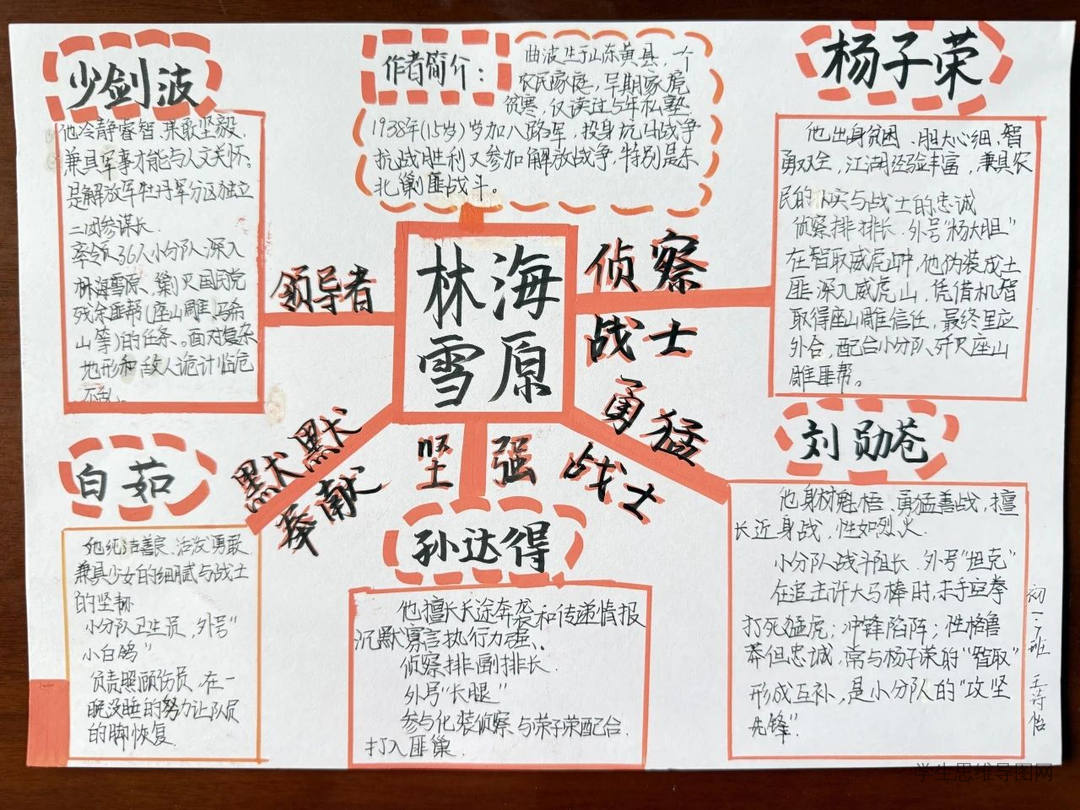 少剑波
他冷静睿智、果敢坚毅,
兼具军事才能与人文关怀.
是解放军牡丹军分区独立
二团参谋长.
率领36人小分队,深入
林海雪原、剿灭国民党
残余匪帮(座山雕、马希
山等)的任务。面对复杂
地形和敌人诡计临危
不乱.
作者简介:
曲波生于山东黄县,一个
农民家庭,早期家庭
贫寒,仅读过5年私塾
1938年(15岁)岁加八路军,投身抗日战争
抗战胜利又参加解放战争,特别是东
北剿匪战斗。
杨子荣
他出身贫困、胆大心细,智
勇双全,江湖经验丰富,兼具农
民的朴实与战士的忠诚
侦察排排长.外号"杨大胆"
在智取威虎山中,他伪装成土
匪深入威虎山,凭借机智
取得座山雕信任,最终里应
外合,配合小分队歼灭座山
雕匪帮。
林海
雪原
领导者
侦察
战士
勇猛
战士
坚强
默默
奉献
白茹
她纯洁善良、活发勇敢
兼具少女的细腻与战士
的坚韧
小分队卫生员,外号"
小白鸽"
负责照顾伤员,在一
晚没睡的努力让队员
的脚恢复.
孙达得
他擅长长途奔袭和传递情报
沉默寡言执行力强、
侦察排副排长.
外号"长腿"
参与化装侦察、与荣子荣配合.
打入匪巢.
刘勋苍
他身材魁梧、勇猛善战,擅
长近身战,性如烈火.
小分队战斗组长.外号"坦克"
在追击许大马棒时,赤手空拳
打死猛虎;冲锋陷阵;性格鲁
莽但忠诚,常与杨子荣的"智取"
形成互补,是小分队的"攻坚
先锋".
初一.7班 王诗怡
学生思维导图网